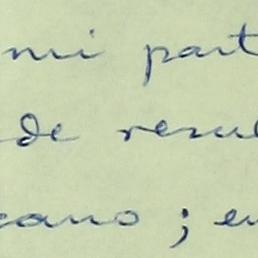 mi part
de resul
cano ; en